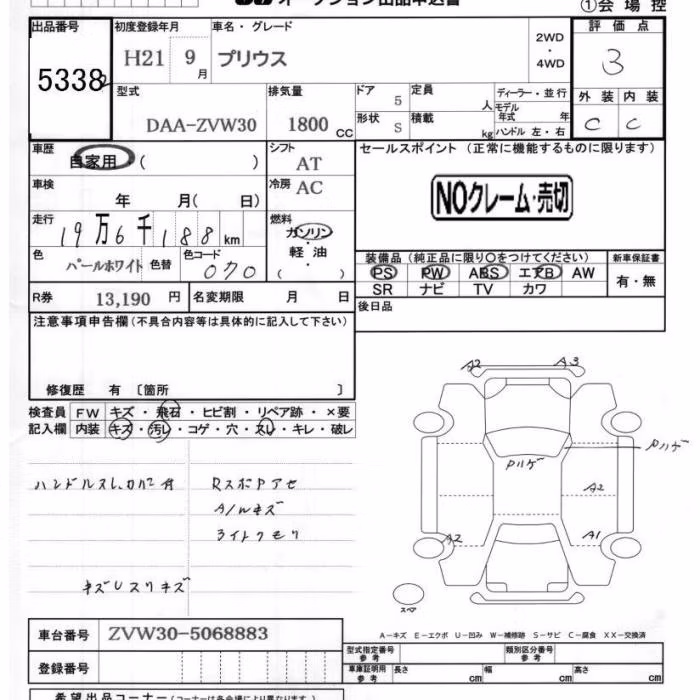 オークション出品申込書
①会場控
出品番号 初度登録年月 車名・グレード 評価点
5338 H21 9月 プリウス 2WD・4WD 3
型式 排気量 ドア 5 定員 人 ディーラー・並行 外装 内装
DAA-ZVW30 1800 CC 形状 S 積載 kg モデル年式 年 C C
ハンドル 左・右
車歴 シフト セールスポイント(正常に機能するものに限ります)
自家用 ( ) AT
車検 冷房 AC
年 月( 日) NOクレーム・売切
走行 燃料
19万6千188km ガソリン・軽油 ( )
色 パールホワイト 色替 色コード 070
装備品(純正品に限り○をつけてください) 新車保証書
PS PW ABS エアB AW 有・無
SR ナビ TV カワ
R券 13,190 円 名変期限 月 日 後日品
注意事項申告欄(不具合内容等は具体的に記入して下さい)
修復歴 有 〔箇所 〕
検査員 FW キズ・飛石・ヒビ割・リペア跡・×要
記入欄 内装 キズ・汚レ・コゲ・穴・スレ・キレ・破レ
A2 A3
ハンドルスレ
Rスポアセ
A/Wキズ
ライトクモリ
キズUスリキズ
Pハゲ
Pハゲ
A2
A2 A1
スペア
A-キズ E-エクボ U-凹み W-補修跡 S-サビ C-腐食 XX-交換済
車台番号 ZVW30-5068883
登録番号
型式指定番号 参考 類別区分番号 参考
車庫証明用 参考 長さ cm 幅 cm 高さ cm
希望出品コーナー(コーナーは各会場により異なります)